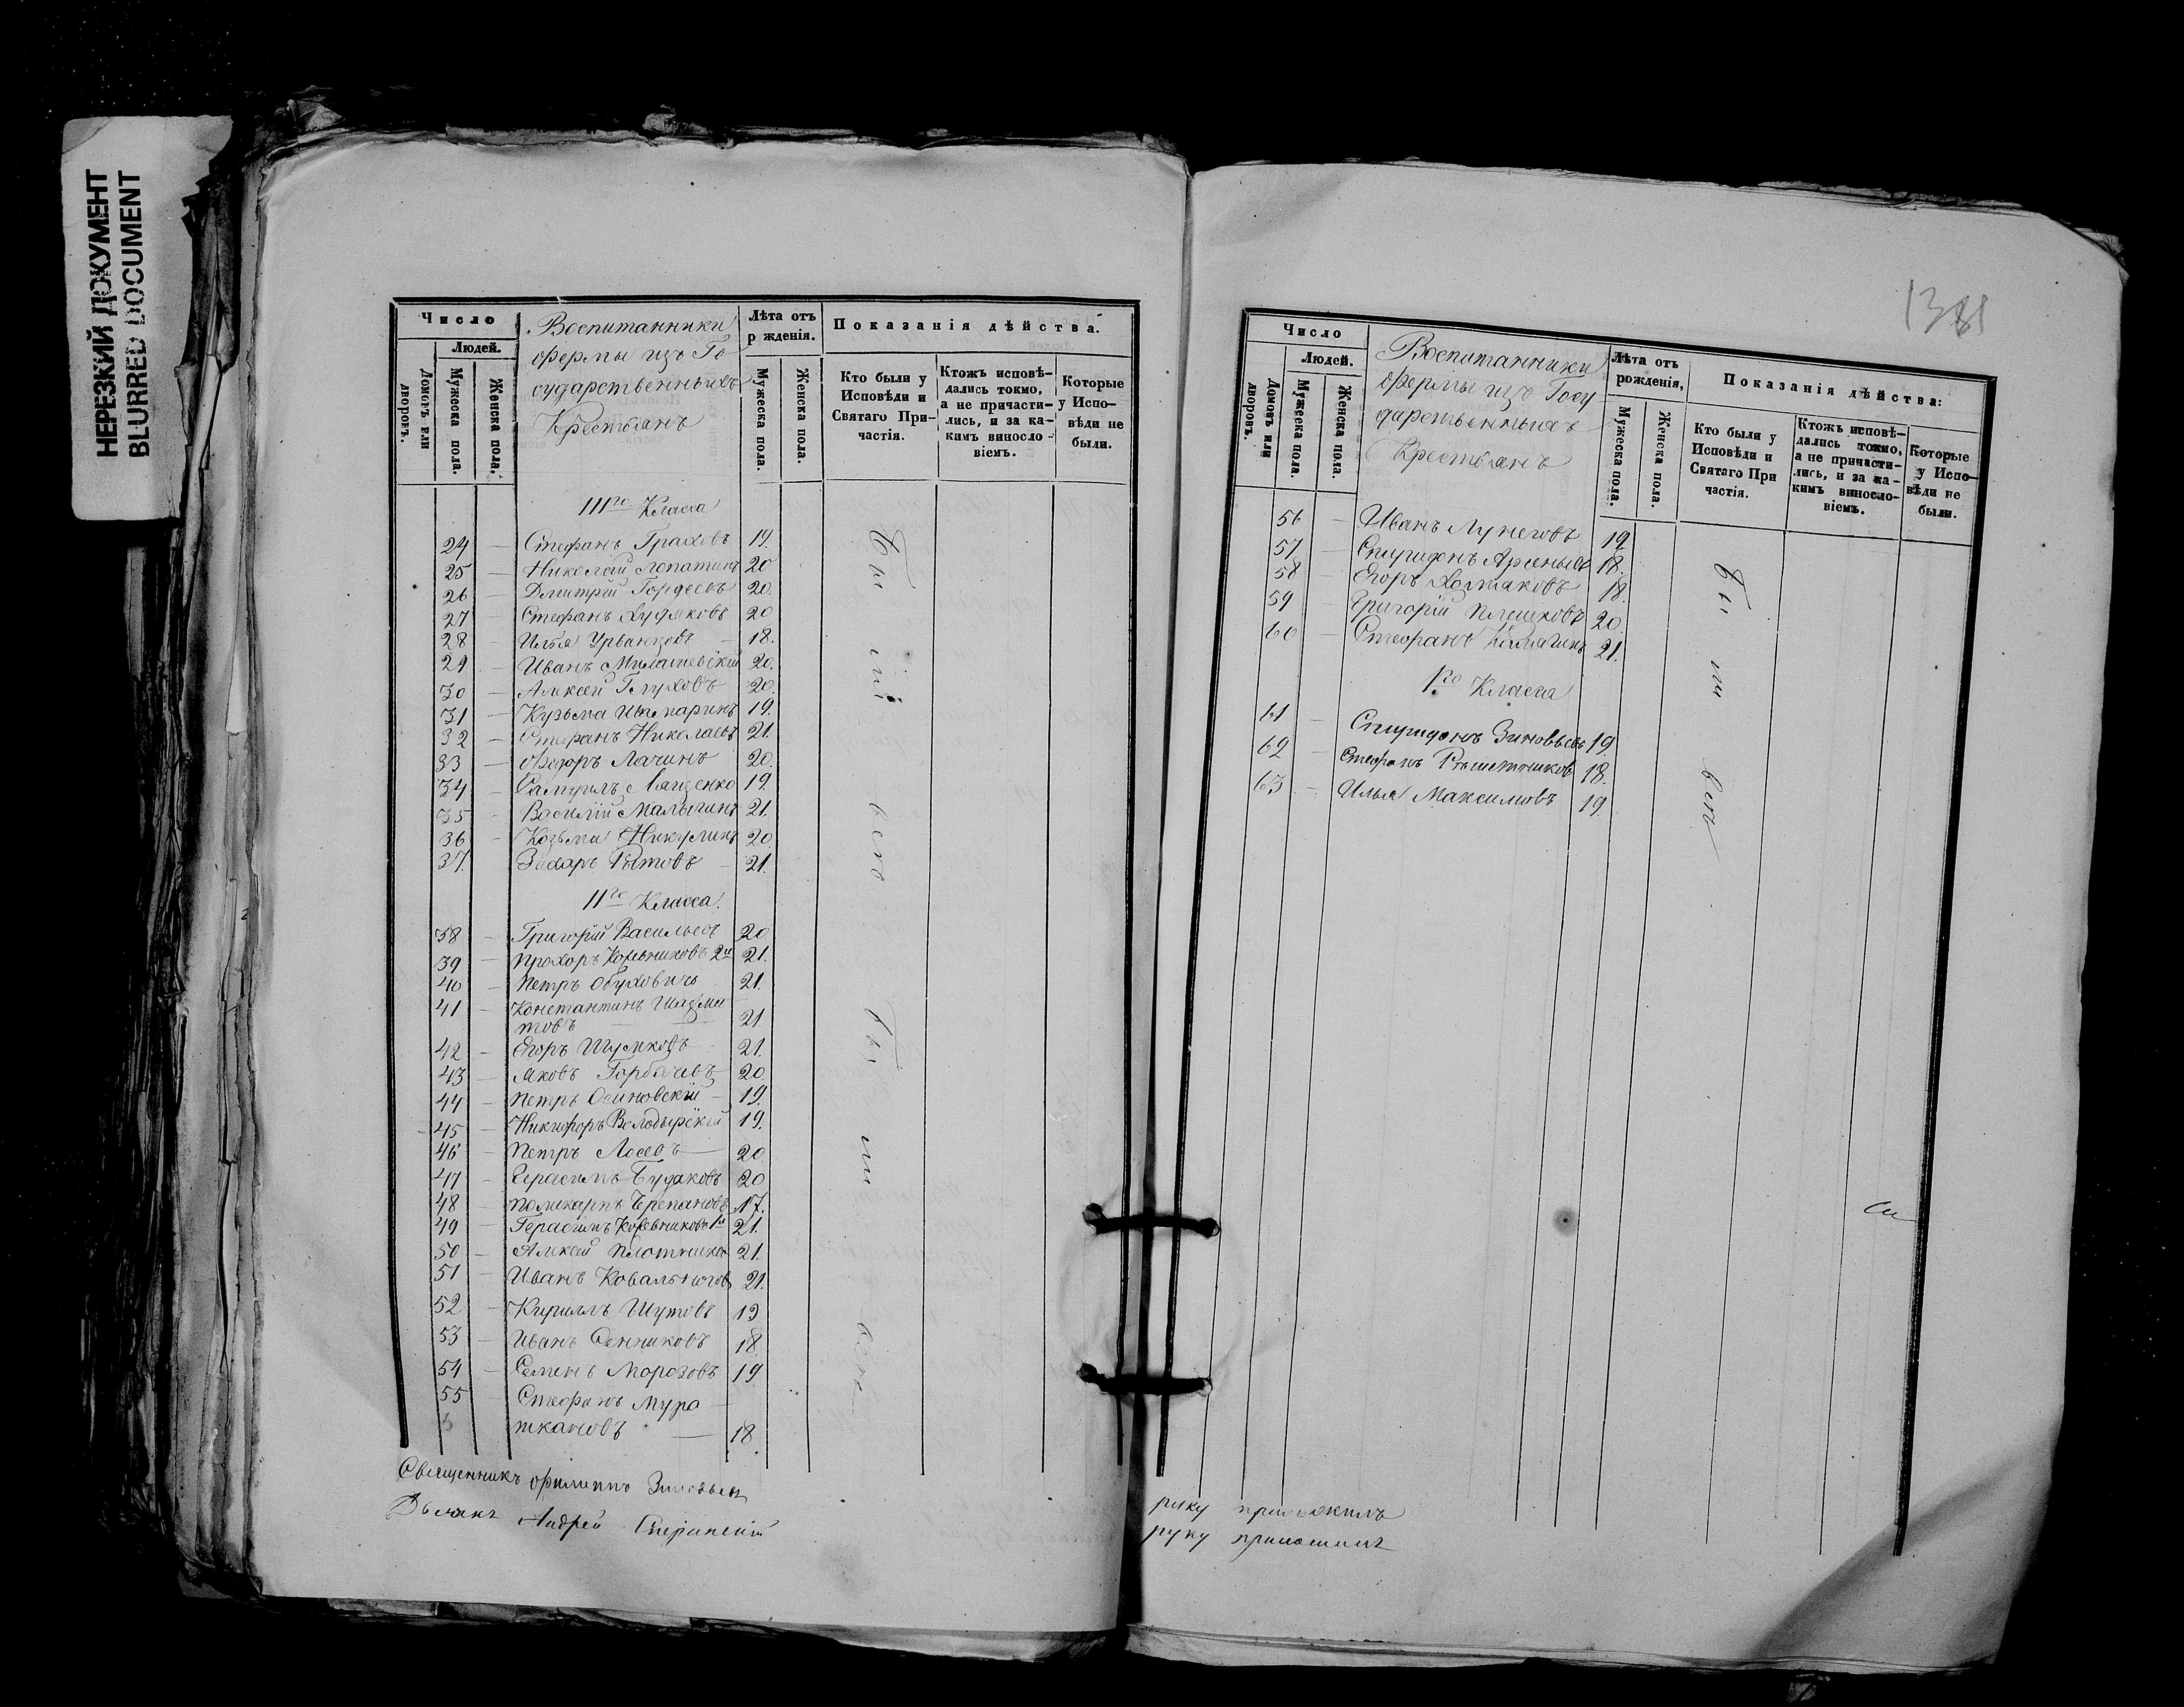 НЕРЕЗКИЙ ДОКУМЕНТ
BLURRED DOCUMENT
Число
Людей.
Домовъ или дворовъ.
Мужеска пола.
Женска пола.
Воспитанники
фермы изъ Го
сударственныхъ
Крестьянъ
Лѣта отъ
р жденія.
Мужеска пола.
Женска пола.
Показанія дѣйства.
Кто были у
Исповѣди и
Святаго При-
частія.
Ктожъ исповѣ-
дались токмо,
а не причасти-
лись, и за ка-
кимъ виносло-
віемъ.
Которые
у Испо-
вѣди не
были.
IIIго Класса
24 — Стефанъ Граховъ 19.
25 — Николай Лопатинъ 20
26 — Димитрій Гордеевъ 20.
27 — Стефанъ Худяковъ 20
28 — Илья Урванцовъ — 18.
29 — Иванъ Милашевскій 20.
30 — Алексей Глуховъ 20.
31 — Кузьма 19.
32 — Стефанъ Николаевъ 21.
33 — Федоръ Лачинъ 20.
34 — Самуилъ Лященко 19.
35 — Василій Малыгинъ 21.
36 — Козьма Никулинъ 20
37. Захаръ Рытовъ — 21.
IIго Класса.
38 — Григорій Васильевъ 20
39 — Прохоръ Кожевниковъ 2й 21.
40 — Петръ Обуховичь 21.
41 — Константинъ Шазме
товъ — 21
42 — Егоръ Шумковъ 21.
43 — Яковъ Горбачевъ 20.
44 — Петръ Осиновскій — 19.
45 — Никифоръ Володырскій 19.
46 — Петръ Лосевъ — 20
47 — Герасимъ Будаковъ 20
48 — Поликарпъ Черепановъ 17.
49 — Герасимъ Кожевниковъ 1й 21.
50 — Алексей Плотников 21.
51 — Иванъ Ковальногов 21.
52 — Кириллъ Шутовъ 19
53 — Иванъ Сенниковъ 18
54 — Семенъ Морозовъ 19
55 — Стефанъ Мура
ткановъ — 18
Бы
ли
Бы
ли
Священникъ Филиппъ Зиновьевъ
Дьячекъ Андрей Сперанскій
1381
Число
Людей.
Домовъ или дворовъ.
Мужеска пола.
Женска пола.
Воспитанники
фермы изъ Госу
дарственныхъ
Крестьянъ
Лѣта отъ
рожденія,
Мужеска пола.
Женска пола.
Показанія дѣйства:
Кто были у
Исповѣди и
Святаго При
частія.
Ктожъ исповѣ-
дались токмо,
а не причасти-
лись, и за ка-
кимъ виносло-
віемъ.
Которые
у Испо-
вѣди не
были.
56 — Иванъ Лунеговъ 19
57 — Спиридонъ Арсеньевъ 18.
58 — Егоръ Колпаковъ 18.
59 — Григорій Плешковъ 20.
60 — Стефанъ 21.
Iго Класса
61 — Спиридонъ Зиновьевъ 19.
62 — Стефанъ Решетников 18.
63 — Илья Максимовъ 19.
Бы
ли
руку приложилъ
руку приложилъ